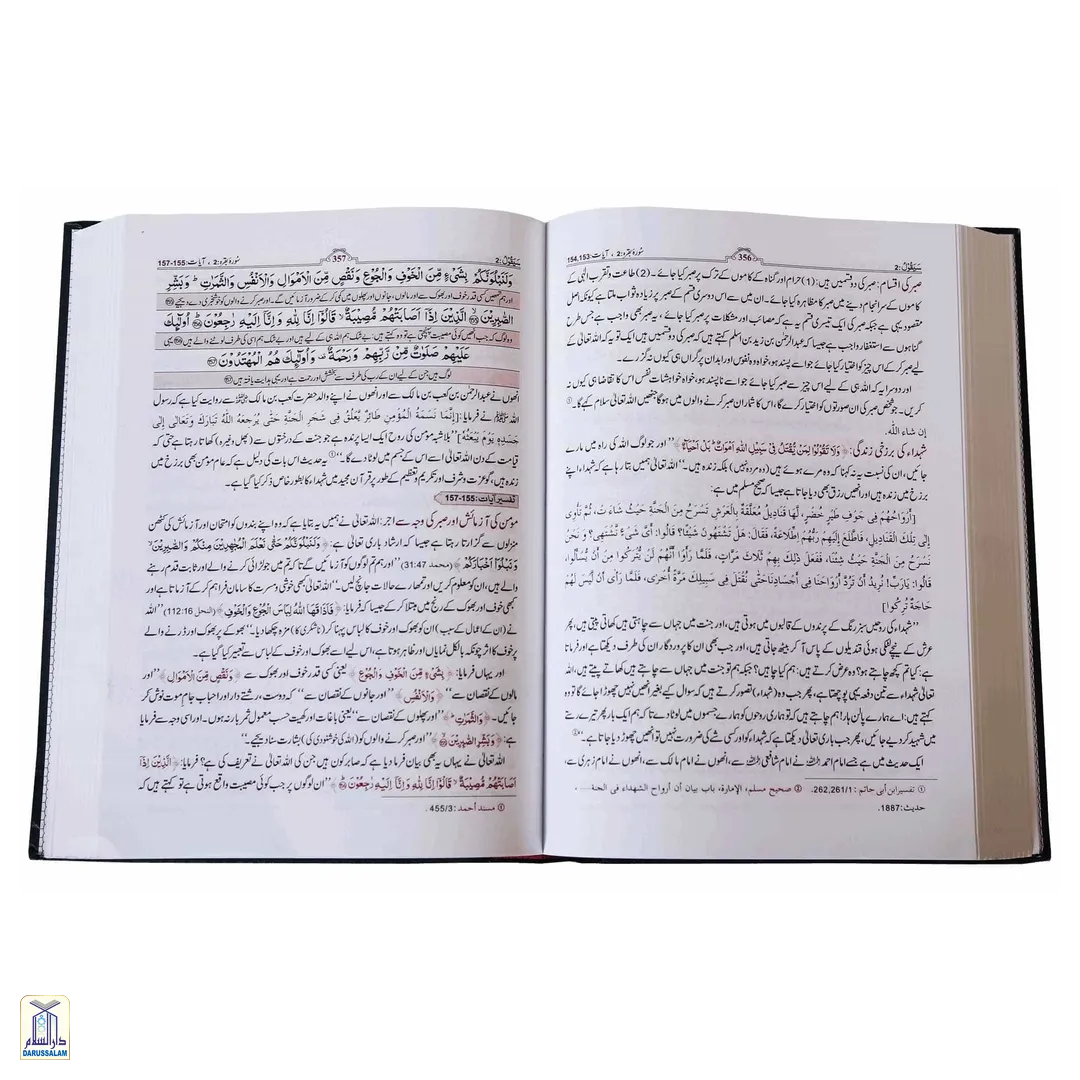 سَیَقُوْلُ:2
356
سُورۂ بقرہ:2 ، آیات:154,153
صبر کی اقسام: صبر کی دو قسمیں ہیں: (1) حرام اور گناہ کے کاموں کے ترک پر صبر کیا جائے۔ (2) طاعت و تقرب الٰہی کے
کاموں کے سرانجام دینے میں صبر کا مظاہرہ کیا جائے۔ ان میں سے اس دوسری قسم کے صبر پر زیادہ ثواب ملتا ہے کیونکہ اصل
مقصود یہی ہے جبکہ صبر کی ایک تیسری قسم یہ ہے کہ مصائب اور مشکلات پر صبر کیا جائے، یہ صبر بھی واجب ہے جس طرح
گناہوں سے استغفار واجب ہے جیسا کہ عبدالرحمٰن بن زید بن اسلم کہتے ہیں کہ صبر کی دو قسمیں ہیں ایک تو یہ کہ اللہ تعالیٰ کے
لیے صبر کر کے اس چیز کو اختیار کیا جائے جو اسے پسند ہو، خواہ وہ نفوس اور ابدان پر گراں ہی کیوں نہ گزرے۔
اور دوسرا یہ کہ اللہ ہی کے لیے اس چیز سے صبر کیا جائے جو اسے ناپسند ہو، خواہ خواہشات نفس اس کا تقاضا ہی کیوں نہ
کریں۔ جو شخص صبر کی ان صورتوں کو اختیار کرے گا، اس کا شمار ان صبر کرنے والوں میں ہوگا جنھیں اللہ تعالیٰ سلام کہے گا۔①
إن شاء اللّٰہ.
شہداء کی برزخی زندگی: ﴿وَلَا تَقُوْلُوْا لِمَنْ یُّقْتَلُ فِیْ سَبِیْلِ اللّٰهِ اَمْوَاتٌ ؕ بَلْ اَحْیَآءٌ﴾ ’’اور جو لوگ اللہ کی راہ میں مارے
جائیں، ان کی نسبت یہ نہ کہنا کہ وہ مرے ہوئے ہیں (وہ مردہ نہیں) بلکہ زندہ ہیں۔‘‘ اللہ تعالیٰ ہمیں بتا رہا ہے کہ شہداء اپنے
برزخ میں زندہ ہیں اور انھیں رزق بھی دیا جاتا ہے جیسا کہ صحیح مسلم میں ہے:
[أَرْوَاحُهُمْ فِي جَوْفِ طَيْرٍ خُضْرٍ، لَهَا قَنَادِيلُ مُعَلَّقَةٌ بِالْعَرْشِ تَسْرَحُ مِنَ الْجَنَّةِ حَيْثُ شَاءَتْ، ثُمَّ تَأْوِي
إِلَى تِلْكَ الْقَنَادِيلِ، فَاطَّلَعَ إِلَيْهِمْ رَبُّهُمُ اطِّلَاعَةً، فَقَالَ: هَلْ تَشْتَهُونَ شَيْئًا؟ قَالُوا: أَيَّ شَيْءٍ نَّشْتَهِي؟ وَ نَحْنُ
نَسْرَحُ مِنَ الْجَنَّةِ حَيْثُ شِئْنَا، فَفَعَلَ ذٰلِكَ بِهِمْ ثَلَاثَ مَرَّاتٍ، فَلَمَّا رَأَوْا أَنَّهُمْ لَنْ يُتْرَكُوا مِنْ أَنْ يُّسْأَلُوا،
قَالُوا: يَارَبِّ! نُرِيدُ أَنْ تَرُدَّ أَرْوَاحَنَا فِي أَجْسَادِنَا حَتّٰى نُقْتَلَ فِي سَبِيلِكَ مَرَّةً أُخْرٰى، فَلَمَّا رَأَى أَنْ لَّيْسَ لَهُمْ
حَاجَةٌ تُرِكُوا]
’’شہداء کی روحیں سبز رنگ کے پرندوں کے قالبوں میں ہوتی ہیں، اور جنت میں جہاں سے چاہتی ہیں کھاتی پیتی ہیں، پھر
عرش کے نیچے لٹکی ہوئی قندیلوں کے پاس آ کر بیٹھ جاتی ہیں، اور جب بھی ان کا پروردگار ان کی طرف دیکھتا ہے اور فرماتا
ہے: کیا تم کچھ چاہتے ہو؟ وہ عرض کرتے ہیں: ہم کیا چاہیں؟ جبکہ ہم تو جنت میں جہاں سے چاہتے ہیں کھاتے پیتے ہیں، اللہ
تعالیٰ شہداء سے تین دفعہ یہی پوچھتا ہے، پھر جب وہ (شہداء) تصور کرتے ہیں کہ سوال کیے بغیر انھیں نہیں چھوڑا جائے گا تو وہ
کہتے ہیں: اے ہمارے پالن ہار! ہم چاہتے ہیں کہ تو ہماری روحوں کو ہمارے جسموں میں لوٹا دے تا کہ ہم ایک بار پھر تیرے رستے
میں شہید کر دیے جائیں، پھر جب باری تعالیٰ دیکھتا ہے کہ شہداء کو اور کسی شے کی ضرورت نہیں تو انھیں چھوڑ دیا جاتا ہے۔‘‘②
ایک حدیث میں ہے جسے امام احمد رحمہ اللہ نے امام شافعی رحمہ اللہ سے، انھوں نے امام مالک سے، انھوں نے امام زہری سے،
① تفسیر ابن أبي حاتم : 262,261/1. ② صحیح مسلم، الإمارة، باب بیان أن أرواح الشهداء في الجنة..... ،
حدیث:1887.
سَیَقُوْلُ:2
357
سُورۂ بقرہ:2 ، آیات:155-157
وَلَنَبْلُوَنَّكُمْ بِشَیْءٍ مِّنَ الْخَوْفِ وَالْجُوْعِ وَنَقْصٍ مِّنَ الْاَمْوَالِ وَالْاَنْفُسِ وَالثَّمَرٰتِ ؕ وَبَشِّرِ
اور ہم تمھیں کسی قدر خوف اور بھوک سے اور مالوں، جانوں اور پھلوں میں کمی کر کے ضرور آزمائیں گے۔ اور صبر کرنے والوں کو خوشخبری دے دیجیے ⑮⑤
الصّٰبِرِیْنَ ۙ﴿155﴾ الَّذِیْنَ اِذَاۤ اَصَابَتْهُمْ مُّصِیْبَةٌ ۙ قَالُوْۤا اِنَّا لِلّٰهِ وَاِنَّاۤ اِلَیْهِ رٰجِعُوْنَ ؕ﴿156﴾ اُولٰٓىِٕكَ
وہ لوگ کہ جب انھیں کوئی مصیبت آپہنچتی ہے تو وہ کہتے ہیں: بے شک ہم اللہ ہی کے لیے ہیں اور بے شک ہم اسی کی طرف لوٹنے والے ہیں ﴿156﴾ یہی
عَلَیْهِمْ صَلَوٰتٌ مِّنْ رَّبِّهِمْ وَرَحْمَةٌ ۫ وَاُولٰٓىِٕكَ هُمُ الْمُهْتَدُوْنَ ﴿157﴾
لوگ ہیں جن کے لیے ان کے رب کی طرف سے بخشش اور رحمت ہے اور یہی ہدایت یافتہ ہیں ﴿157﴾
انھوں نے عبدالرحمٰن بن کعب بن مالک سے اور انھوں نے اپنے والد حضرت کعب بن مالک رضی اللہ عنہ سے روایت کیا ہے کہ رسول
اللہ ﷺ نے فرمایا: [إِنَّمَا نَسَمَةُ الْمُؤْمِنِ طَائِرٌ يَّعْلُقُ فِي شَجَرِ الْجَنَّةِ حَتّٰى يُرْجِعَهُ اللّٰهُ تَبَارَكَ وَتَعَالٰى إِلٰى
جَسَدِهٖ يَوْمَ يَبْعَثُهُ] ’’بلاشبہ مومن کی روح ایک ایسا پرندہ ہے جو جنت کے درختوں سے (پھل وغیرہ) کھاتا رہتا ہے حتی کہ
قیامت کے دن اللہ تعالیٰ اسے اس کے جسم میں لوٹا دے گا۔‘‘① یہ حدیث اس بات کی دلیل ہے کہ عام مومن بھی برزخ میں
زندہ ہیں، گو عزت و شرف اور تکریم و تعظیم کے طور پر قرآن مجید میں شہداء کا بطور خاص ذکر کیا گیا ہے۔
تفسیر آیات:155-157
مومن کی آزمائش اور صبر کی وجہ سے اجر: اللہ تعالیٰ نے ہمیں یہ بتایا ہے کہ وہ اپنے بندوں کو امتحان اور آزمائش کی کٹھن
منزلوں سے گزارتا رہتا ہے جیسا کہ ارشاد باری تعالیٰ ہے: ﴿وَلَنَبْلُوَنَّكُمْ حَتّٰى نَعْلَمَ الْمُجٰهِدِیْنَ مِنْكُمْ وَالصّٰبِرِیْنَ ۙ
وَنَبْلُوَا۟ اَخْبَارَكُمْ﴾ (محمد 31:47) ’’اور ہم تم لوگوں کو آزمائیں گے تاکہ تم میں جو لڑائی کرنے والے اور ثابت قدم رہنے
والے ہیں، ان کو معلوم کریں اور تمھارے حالات جانچ لیں۔‘‘ اللہ تعالیٰ بھی خوشی و مسرت کا سامان فراہم کر کے آزماتا ہے اور
کبھی خوف اور بھوک کے رنج میں مبتلا کر کے جیسا کہ فرمایا: ﴿فَاَذَاقَهَا اللّٰهُ لِبَاسَ الْجُوْعِ وَالْخَوْفِ﴾ (النحل 112:16) ’’اللہ
نے (ان کے اعمال کے سبب) ان کو بھوک اور خوف کا لباس پہنا کر (ناشکری کا) مزہ چکھا دیا۔‘‘ بھوکے پر بھوک اور ڈرنے والے
پر خوف کا اثر چونکہ بالکل نمایاں اور ظاہر ہوتا ہے، اس لیے اسے بھوک اور خوف کے لباس سے تعبیر کیا گیا ہے۔
اور یہاں فرمایا: ﴿بِشَیْءٍ مِّنَ الْخَوْفِ وَالْجُوْعِ﴾ یعنی کسی قدر خوف اور بھوک سے ﴿وَنَقْصٍ مِّنَ الْاَمْوَالِ﴾ ’’اور
مالوں کے نقصان سے‘‘ ﴿وَالْاَنْفُسِ﴾ ’’اور جانوں کے نقصان سے‘‘ کہ دوست، رشتے دار اور احباب جام موت نوش کر
جائیں۔ ﴿وَالثَّمَرٰتِ ؕ﴾ ’’اور پھلوں کے نقصان سے‘‘ یعنی باغات اور کھیت حسب معمول ثمر بار نہ ہوں۔ اور اسی وجہ سے فرمایا
ہے: ﴿وَبَشِّرِ الصّٰبِرِیْنَ﴾ ’’اور صبر کرنے والوں کو (اللہ کی خوشنودی کی) بشارت سنا دیجیے۔‘‘
اللہ تعالیٰ نے یہاں یہ بھی بیان فرما دیا ہے کہ صابر کون ہیں جن کی اللہ تعالیٰ نے تعریف کی ہے؟ فرمایا: ﴿الَّذِیْنَ اِذَاۤ
اَصَابَتْهُمْ مُّصِیْبَةٌ ۙ قَالُوْۤا اِنَّا لِلّٰهِ وَاِنَّاۤ اِلَیْهِ رٰجِعُوْنَ﴾ ’’ان لوگوں پر جب کوئی مصیبت واقع ہوتی ہے تو کہتے ہیں کہ
① مسند أحمد :455/3 .
دارالسلام
DARUSSALAM